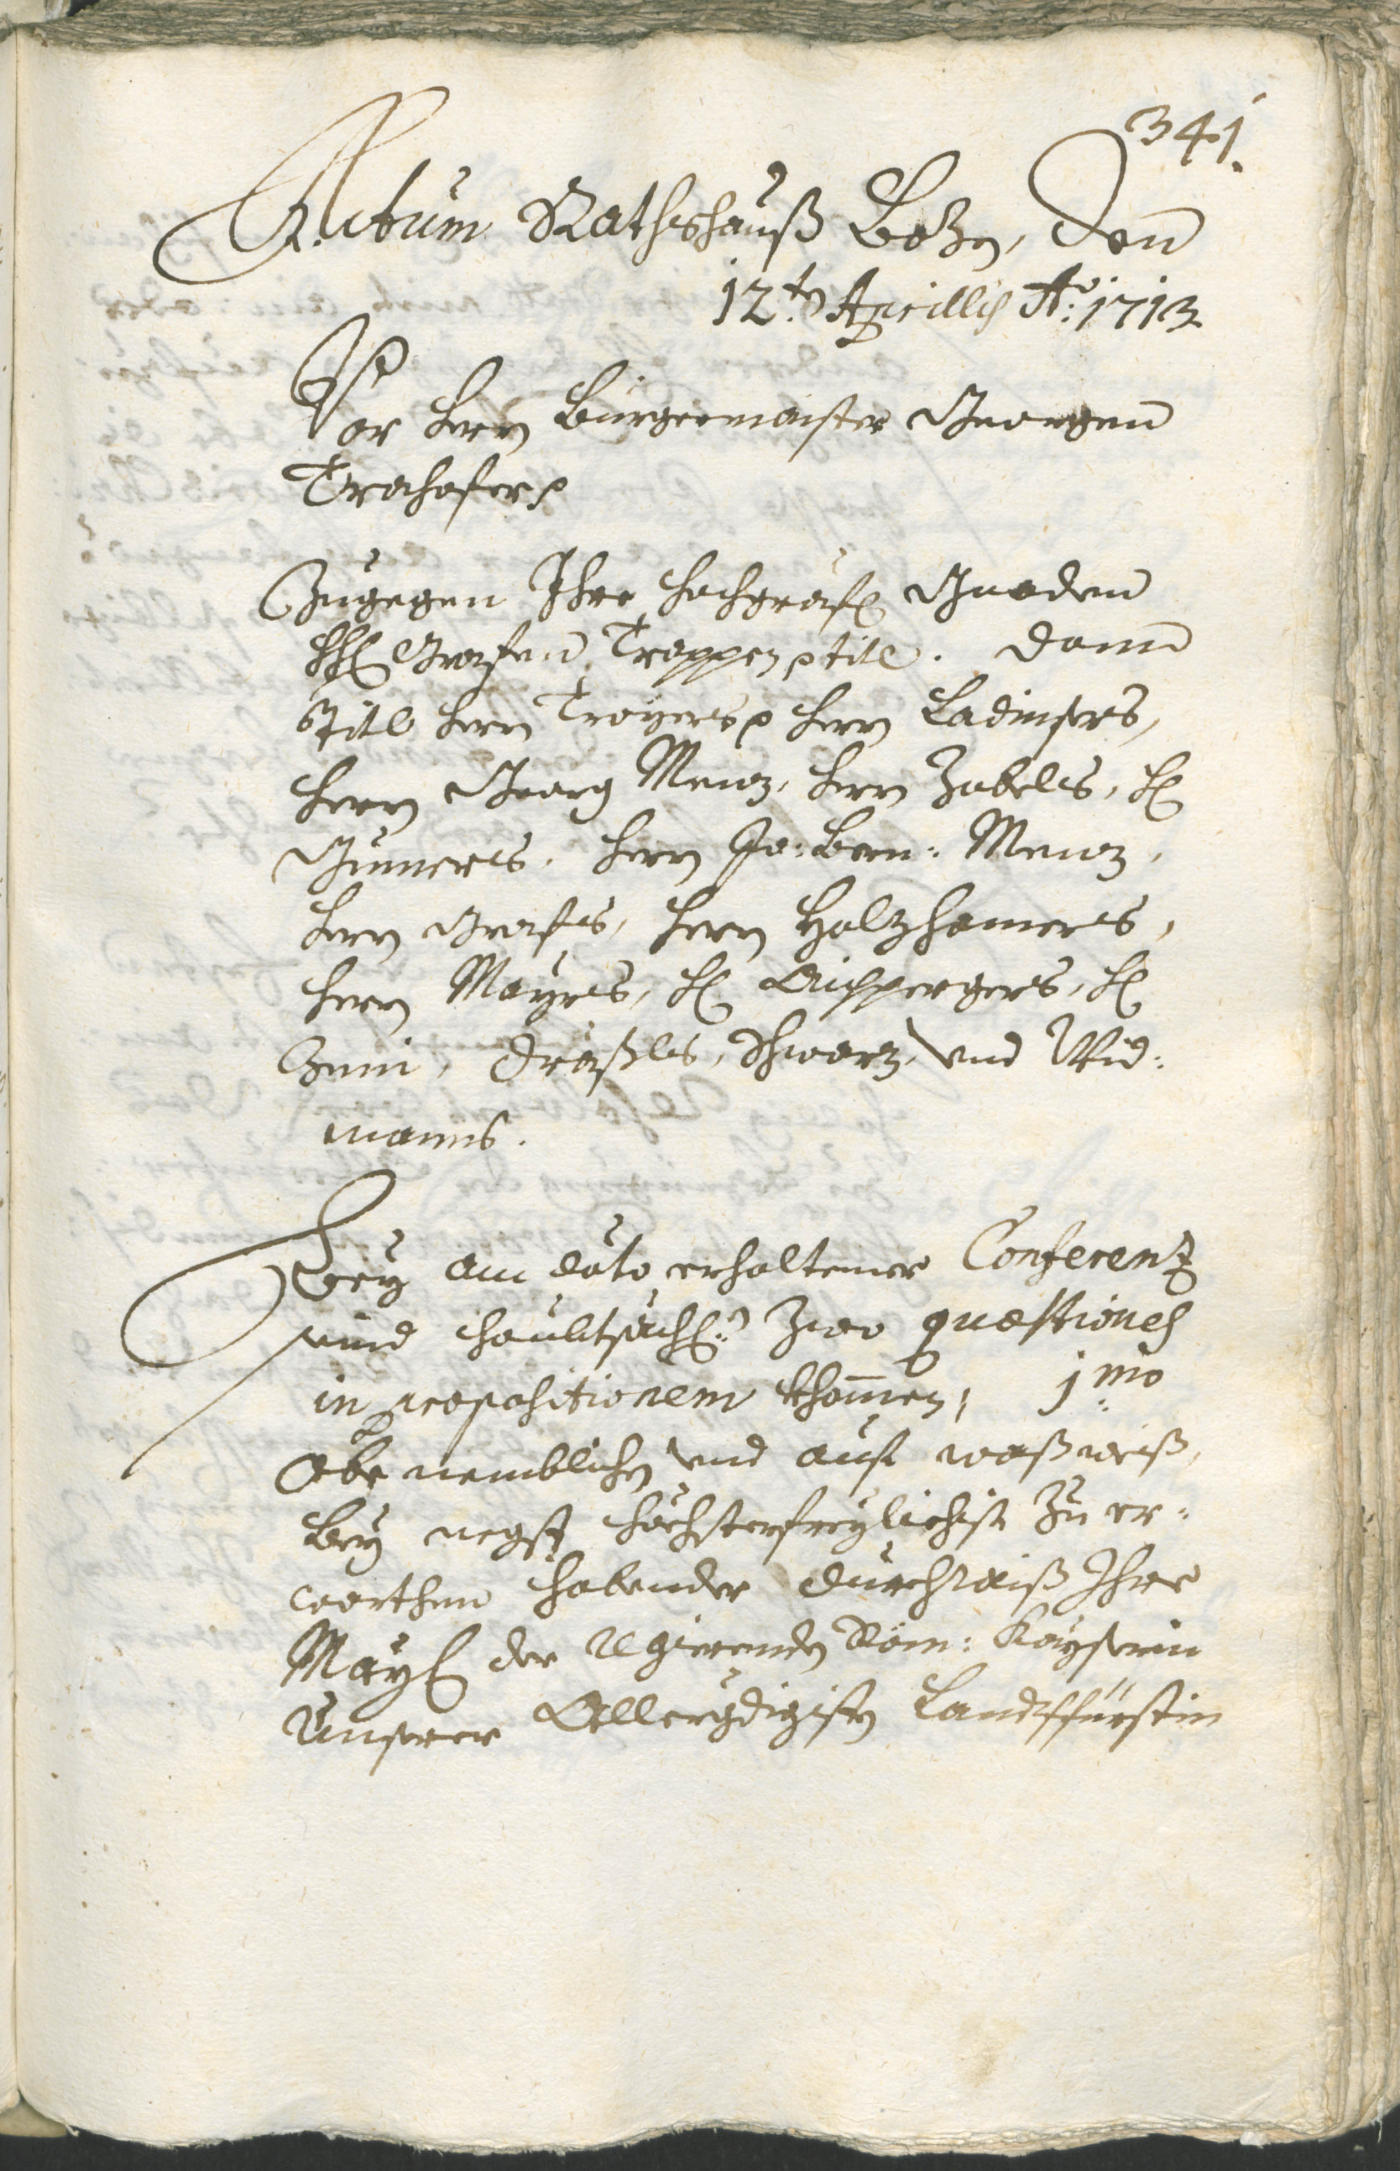 341.
Actum Rathshauß Bozen, den
12.ten Aprillis Ao: 1713
Vor herrn Burgermaister Georgen
Trachafer
Zugegen Ihro hochgräfl Gnaden
Grafen Trappen titl. dann
Titl herrn Troyers herrn Ladinsers,
herrn Georg Menz, herrn Zabeles, hl
Gumers, herrn Jo: Bern: Menz,
herrn Grafes, herrn Holzhamers,
herrn Mayrs, hl Aichpergers, hl
Zeni, Dräxls, Schwarz, und Wid:
manns.
Bey am dato erhaltener Conferenz
sind haubtsächl: zwo quæstiones
in propositionem khomen, 1mo
Obe nemblichen und auf waß weiß,
bey negst höchsterfreylichist zu er:
warthen habender durchraiß Ihro
Mayl der Regierenden Röm: Kayserin
Unserer Allergdigisten Landtsfürstin